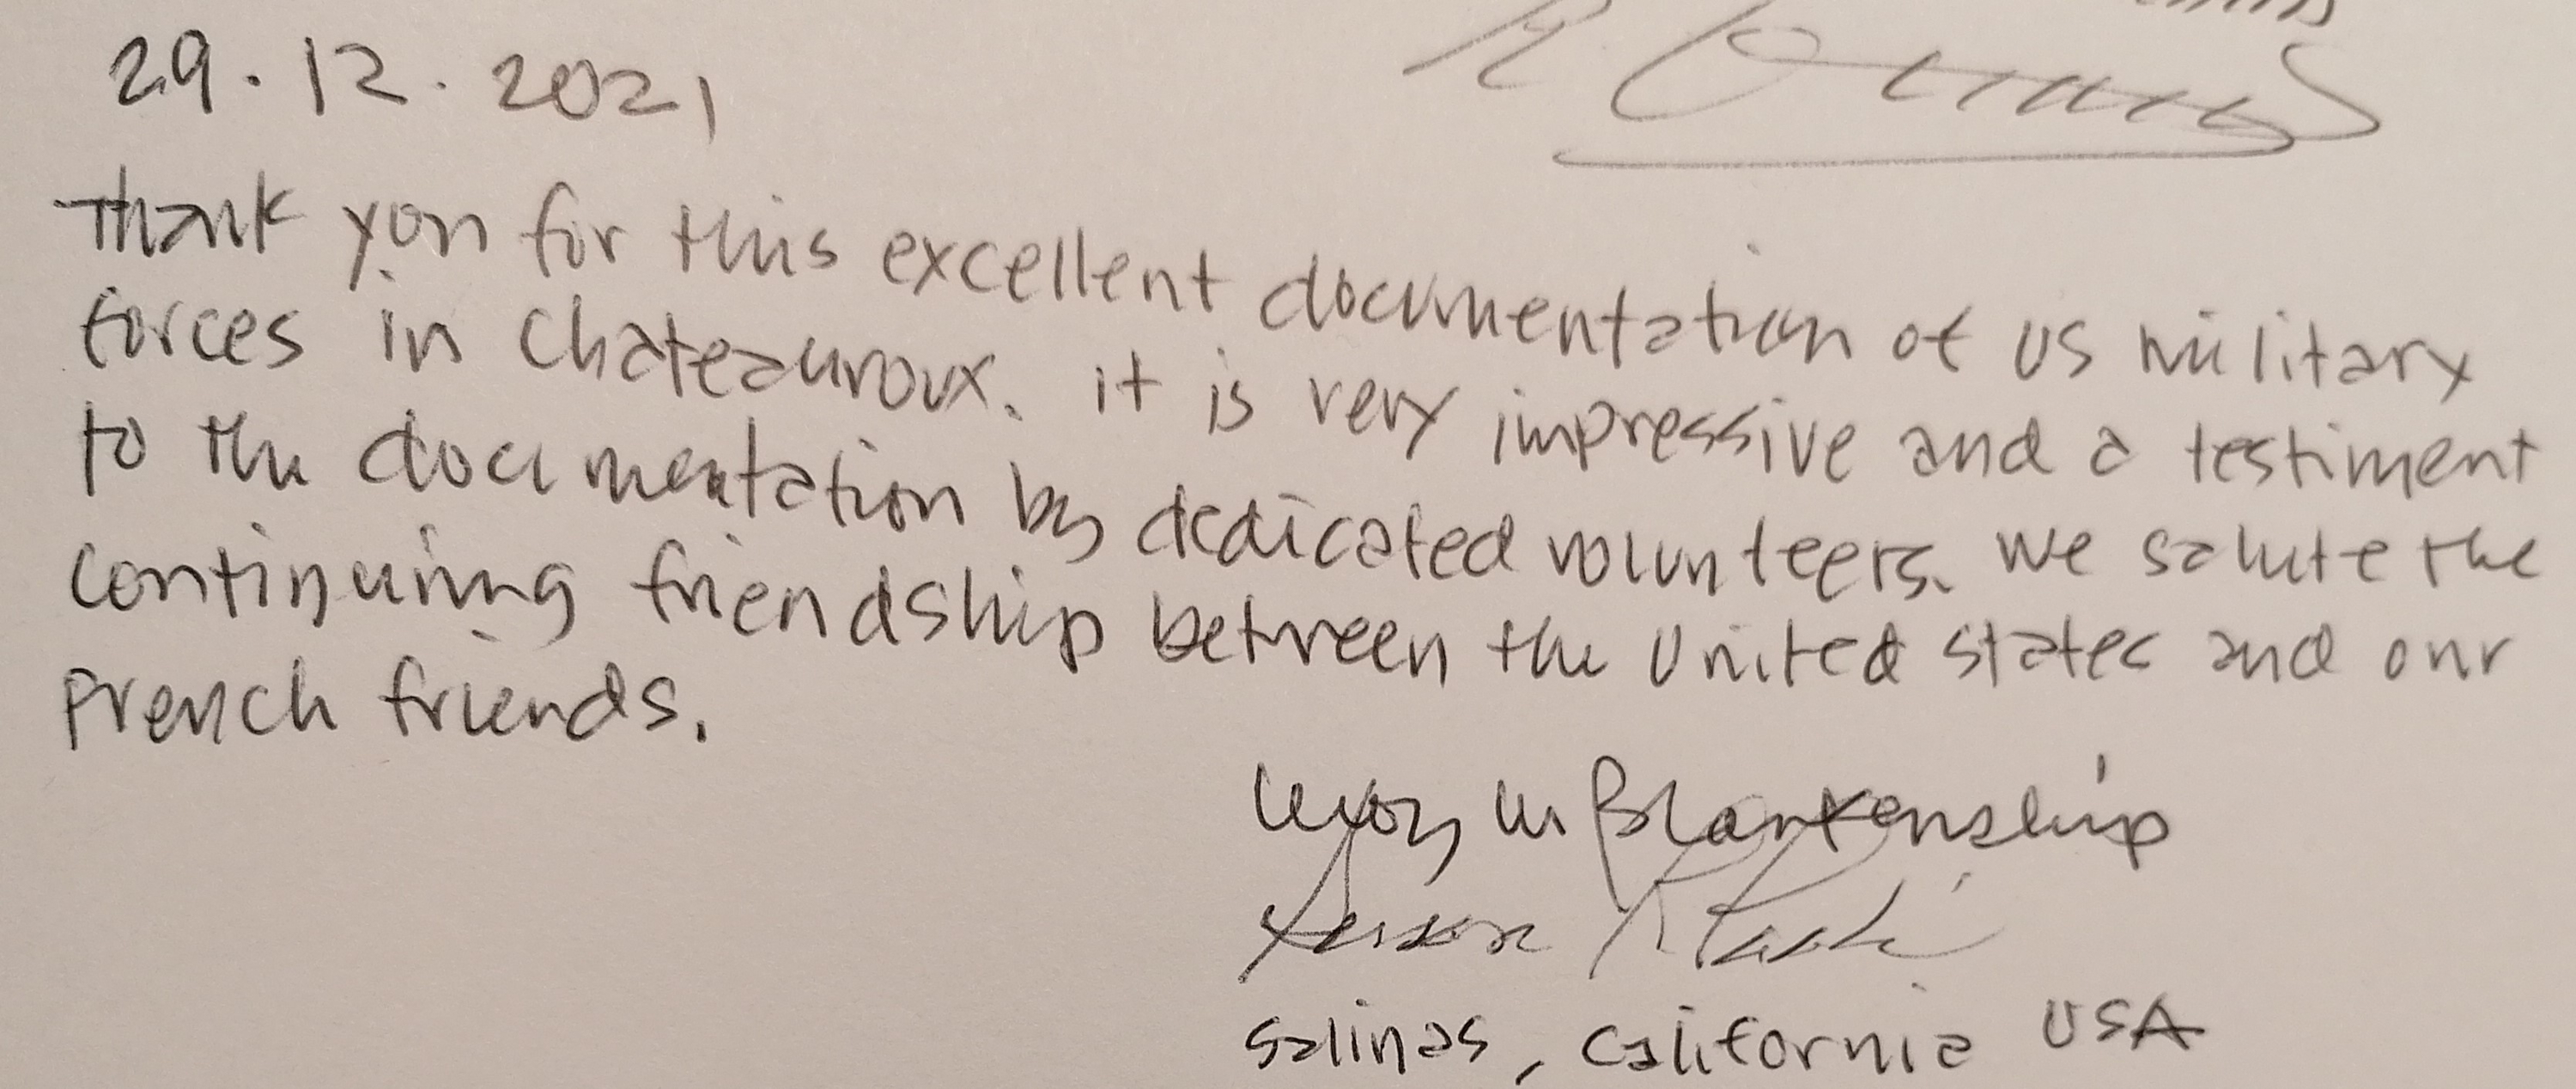 29.12.2021
Thank you for this excellent documentation of US military
forces in Chateauroux. it is very impressive and a testiment
to the documentation by dedicated volunteers. We salute the
continuining friendship between the United States and our
French friends.
Blankenship
Salinas, California USA